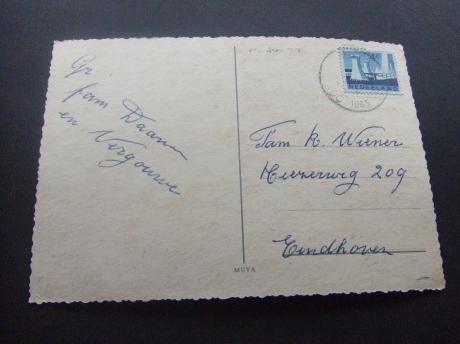 Gr
fam Daane
en Vergouwe
NEDERLAND
1965
Fam K. Wiener
Heezerweg 209
Eindhoven
MUVA